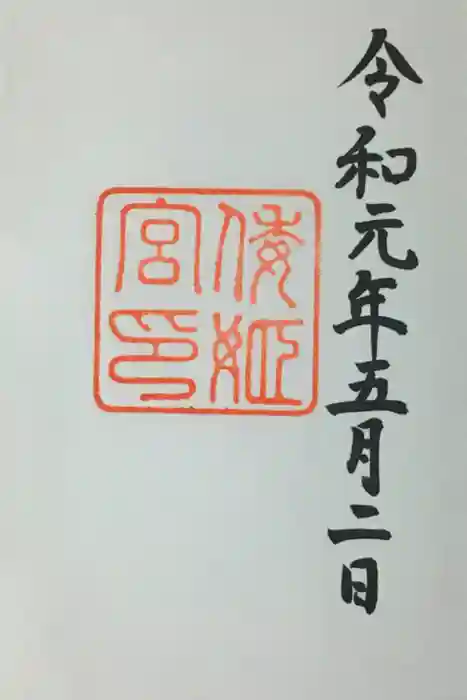 令和元年五月二日
倭姫
宮印